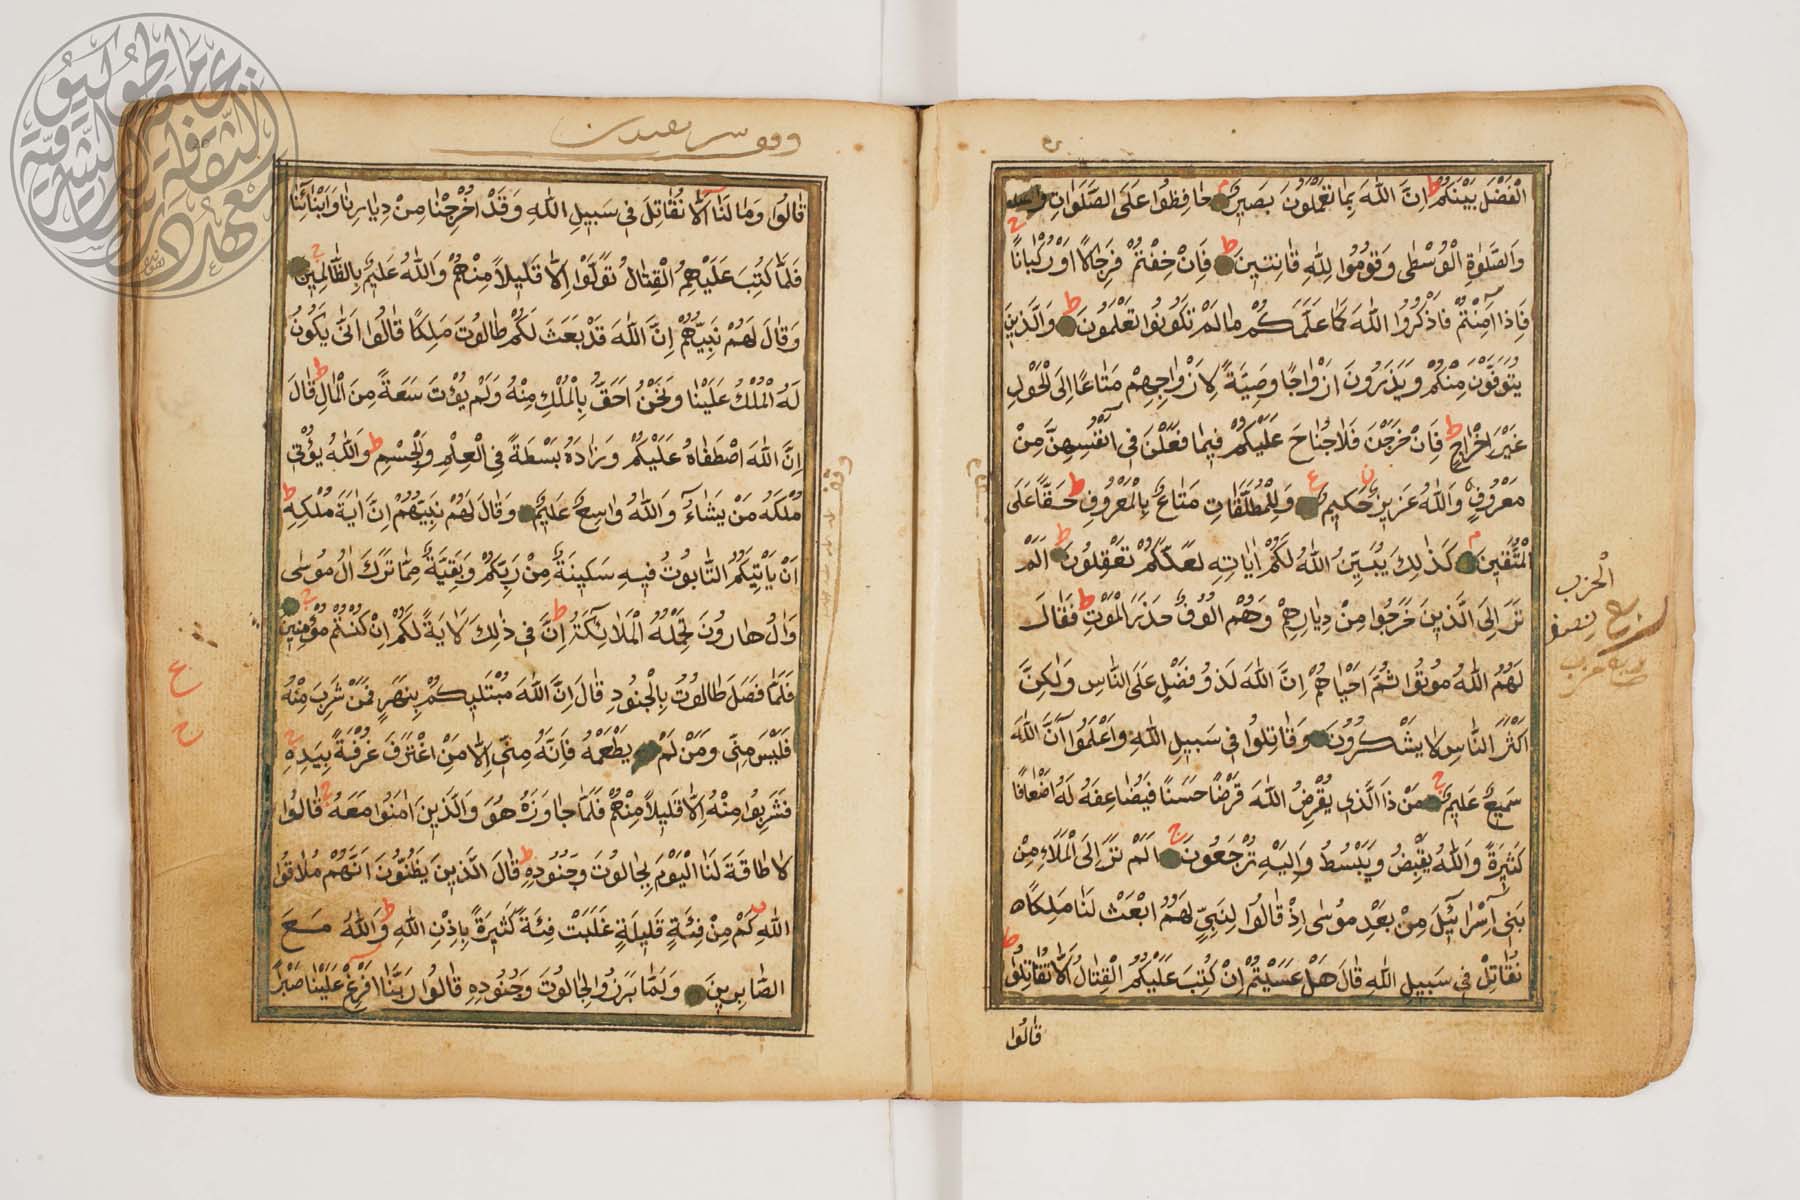 الْفَضْلَ بَيْنَكُمْ ط اِنَّ اللّٰهَ بِمَا تَعْمَلُونَ بَصِيرٌ م حَافِظُوا عَلَى الصَّلَوَاتِ
وَالصَّلٰوةِ الْوُسْطٰى وَقُومُوا لِلّٰهِ قَانِتِينَ ط فَاِنْ خِفْتُمْ فَرِجَالًا اَوْ رُكْبَانًا ج
فَاِذَا اَمِنْتُمْ فَاذْكُرُوا اللّٰهَ كَمَا عَلَّمَكُمْ مَا لَمْ تَكُونُوا تَعْلَمُونَ ط وَالَّذِينَ
يُتَوَفَّوْنَ مِنْكُمْ وَيَذَرُونَ اَزْوَاجًا وَصِيَّةً لِاَزْوَاجِهِمْ مَتَاعًا اِلَى الْحَوْلِ
غَيْرَ اِخْرَاجٍ ط فَاِنْ خَرَجْنَ فَلَا جُنَاحَ عَلَيْكُمْ فِيمَا فَعَلْنَ فِى اَنْفُسِهِنَّ مِنْ
مَعْرُوفٍ وَاللّٰهُ عَزِيزٌ حَكِيمٌ ع وَلِلْمُطَلَّقَاتِ مَتَاعٌ بِالْمَعْرُوفِ ط حَقًّا عَلَى
الْمُتَّقِينَ م كَذٰلِكَ يُبَيِّنُ اللّٰهُ لَكُمْ اٰيَاتِهِ لَعَلَّكُمْ تَعْقِلُونَ ط اَلَمْ
تَرَ اِلَى الَّذِينَ خَرَجُوا مِنْ دِيَارِهِمْ وَهُمْ اُلُوفٌ حَذَرَ الْمَوْتِ ط فَقَالَ
لَهُمُ اللّٰهُ مُوتُوا ثُمَّ اَحْيَاهُمْ اِنَّ اللّٰهَ لَذُو فَضْلٍ عَلَى النَّاسِ وَلٰكِنَّ
اَكْثَرَ النَّاسِ لَا يَشْكُرُونَ وَقَاتِلُوا فِى سَبِيلِ اللّٰهِ وَاعْلَمُوا اَنَّ اللّٰهَ
سَمِيعٌ عَلِيمٌ ج مَنْ ذَا الَّذِى يُقْرِضُ اللّٰهَ قَرْضًا حَسَنًا فَيُضَاعِفَهُ لَهُ اَضْعَافًا
كَثِيرَةً وَاللّٰهُ يَقْبِضُ وَيَبْسُطُ وَاِلَيْهِ تُرْجَعُونَ ج اَلَمْ تَرَ اِلَى الْمَلَاءِ مِنْ
بَنِى اِسْرَائِلَ مِنْ بَعْدِ مُوسٰى اِذْ قَالُوا لِنَبِىٍّ لَهُمُ ابْعَثْ لَنَا مَلِكًا
نُقَاتِلْ فِى سَبِيلِ اللّٰهِ قَالَ هَلْ عَسَيْتُمْ اِنْ كُتِبَ عَلَيْكُمُ الْقِتَالُ اَلَّا تُقَاتِلُوا ط
قَالُوا
الْحزب
قَالُوا وَمَا لَنَا اَلَّا نُقَاتِلَ فِى سَبِيلِ اللّٰهِ وَقَدْ اُخْرِجْنَا مِنْ دِيَارِنَا وَاَبْنَائِنَا
فَلَمَّا كُتِبَ عَلَيْهِمُ الْقِتَالُ تَوَلَّوْا اِلَّا قَلِيلًا مِنْهُمْ وَاللّٰهُ عَلِيمٌ بِالظَّالِمِينَ ج
وَقَالَ لَهُمْ نَبِيُّهُمْ اِنَّ اللّٰهَ قَدْ بَعَثَ لَكُمْ طَالُوتَ مَلِكًا قَالُوا اَنّٰى يَكُونُ
لَهُ الْمُلْكُ عَلَيْنَا وَنَحْنُ اَحَقُّ بِالْمُلْكِ مِنْهُ وَلَمْ يُؤْتَ سَعَةً مِنَ الْمَالِ ط قَالَ
اِنَّ اللّٰهَ اصْطَفَاهُ عَلَيْكُمْ وَزَادَهُ بَسْطَةً فِى الْعِلْمِ وَالْجِسْمِ ط وَاللّٰهُ يُؤْتِى
مُلْكَهُ مَنْ يَشَاءُ وَاللّٰهُ وَاسِعٌ عَلِيمٌ وَقَالَ لَهُمْ نَبِيُّهُمْ اِنَّ اٰيَةَ مُلْكِهِ ط
اَنْ يَأْتِيَكُمُ التَّابُوتُ فِيهِ سَكِينَةٌ مِنْ رَبِّكُمْ وَبَقِيَّةٌ مِمَّا تَرَكَ اٰلُ مُوسٰى
وَاٰلُ هَارُونَ تَحْمِلُهُ الْمَلَائِكَةُ ط اِنَّ فِى ذٰلِكَ لَاٰيَةً لَكُمْ اِنْ كُنْتُمْ مُؤْمِنِينَ ج
فَلَمَّا فَصَلَ طَالُوتُ بِالْجُنُودِ قَالَ اِنَّ اللّٰهَ مُبْتَلِيكُمْ بِنَهَرٍ فَمَنْ شَرِبَ مِنْهُ
فَلَيْسَ مِنِّى وَمَنْ لَمْ يَطْعَمْهُ فَاِنَّهُ مِنِّى اِلَّا مَنِ اغْتَرَفَ غُرْفَةً بِيَدِهِ ج
فَشَرِبُوا مِنْهُ اِلَّا قَلِيلًا مِنْهُمْ فَلَمَّا جَاوَزَهُ هُوَ وَالَّذِينَ اٰمَنُوا مَعَهُ ج قَالُوا
لَا طَاقَةَ لَنَا الْيَوْمَ بِجَالُوتَ وَجُنُودِهِ ط قَالَ الَّذِينَ يَظُنُّونَ اَنَّهُمْ مُلَاقُوا
اللّٰهِ كَمْ مِنْ فِئَةٍ قَلِيلَةٍ غَلَبَتْ فِئَةً كَثِيرَةً بِاِذْنِ اللّٰهِ ط وَاللّٰهُ مَعَ
الصَّابِرِينَ وَلَمَّا بَرَزُوا لِجَالُوتَ وَجُنُودِهِ قَالُوا رَبَّنَا اَفْرِغْ عَلَيْنَا صَبْرًا
ع
ج
وقف